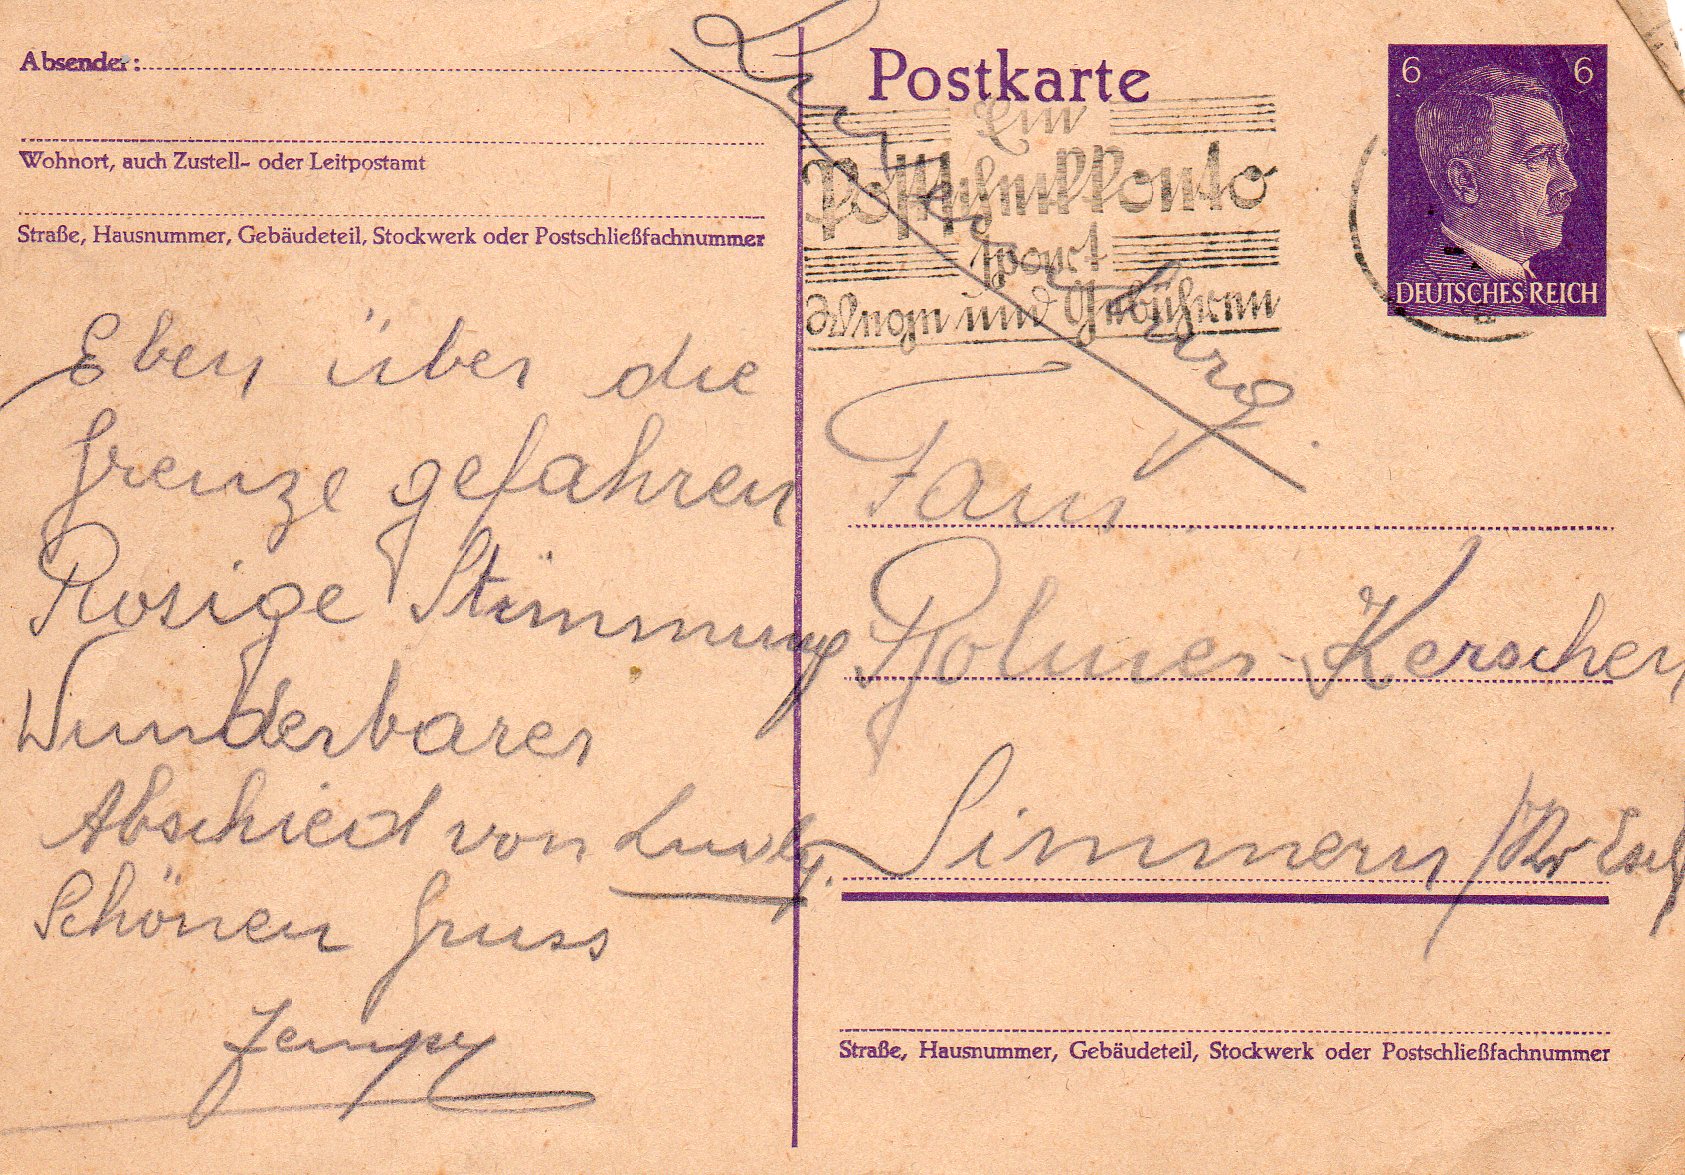 Absender:
Wohnort, auch Zustell- oder Leitpostamt
Straße, Hausnummer, Gebäudeteil, Stockwerk oder Postschließfachnummer
Eben über die
Grenze gefahren
Rosige Stimmung
Wunderbarer
Abschied von
Schönen Gruss
Jempy
Postkarte
6 6
DEUTSCHES REICH
Ein
Postscheckkonto
spart
Wege und Gebühren
Luxemburg.
Fam.
Kerschen
Simmern
Straße, Hausnummer, Gebäudeteil, Stockwerk oder Postschließfachnummer